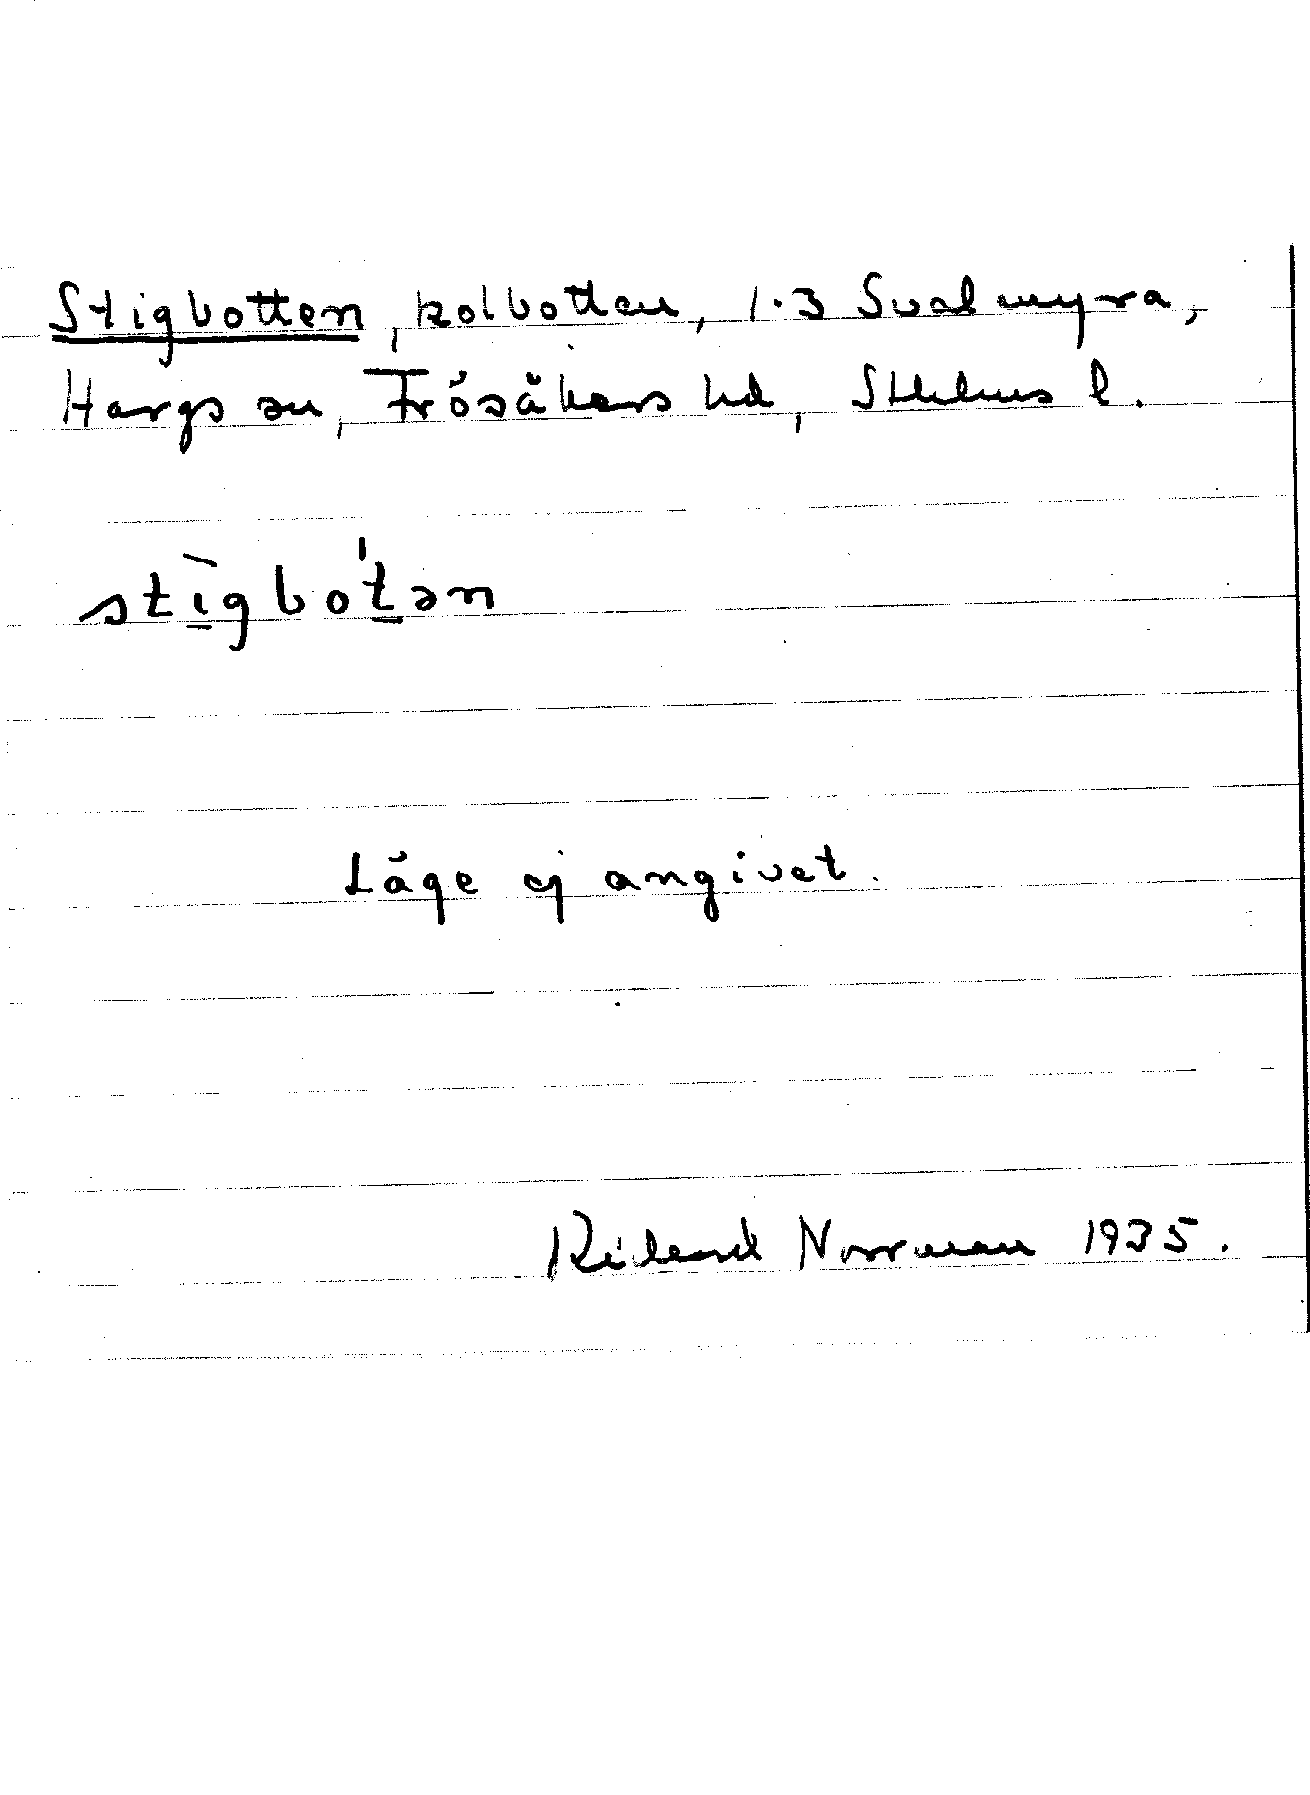 Stigbotten, kolbotten, 1.3 Svalmyra,
Hargs sn, Frösåkers hd, Sthlms l.
stìgbo'tən
Läge ej angivet.
Rickard Norrman 1935.